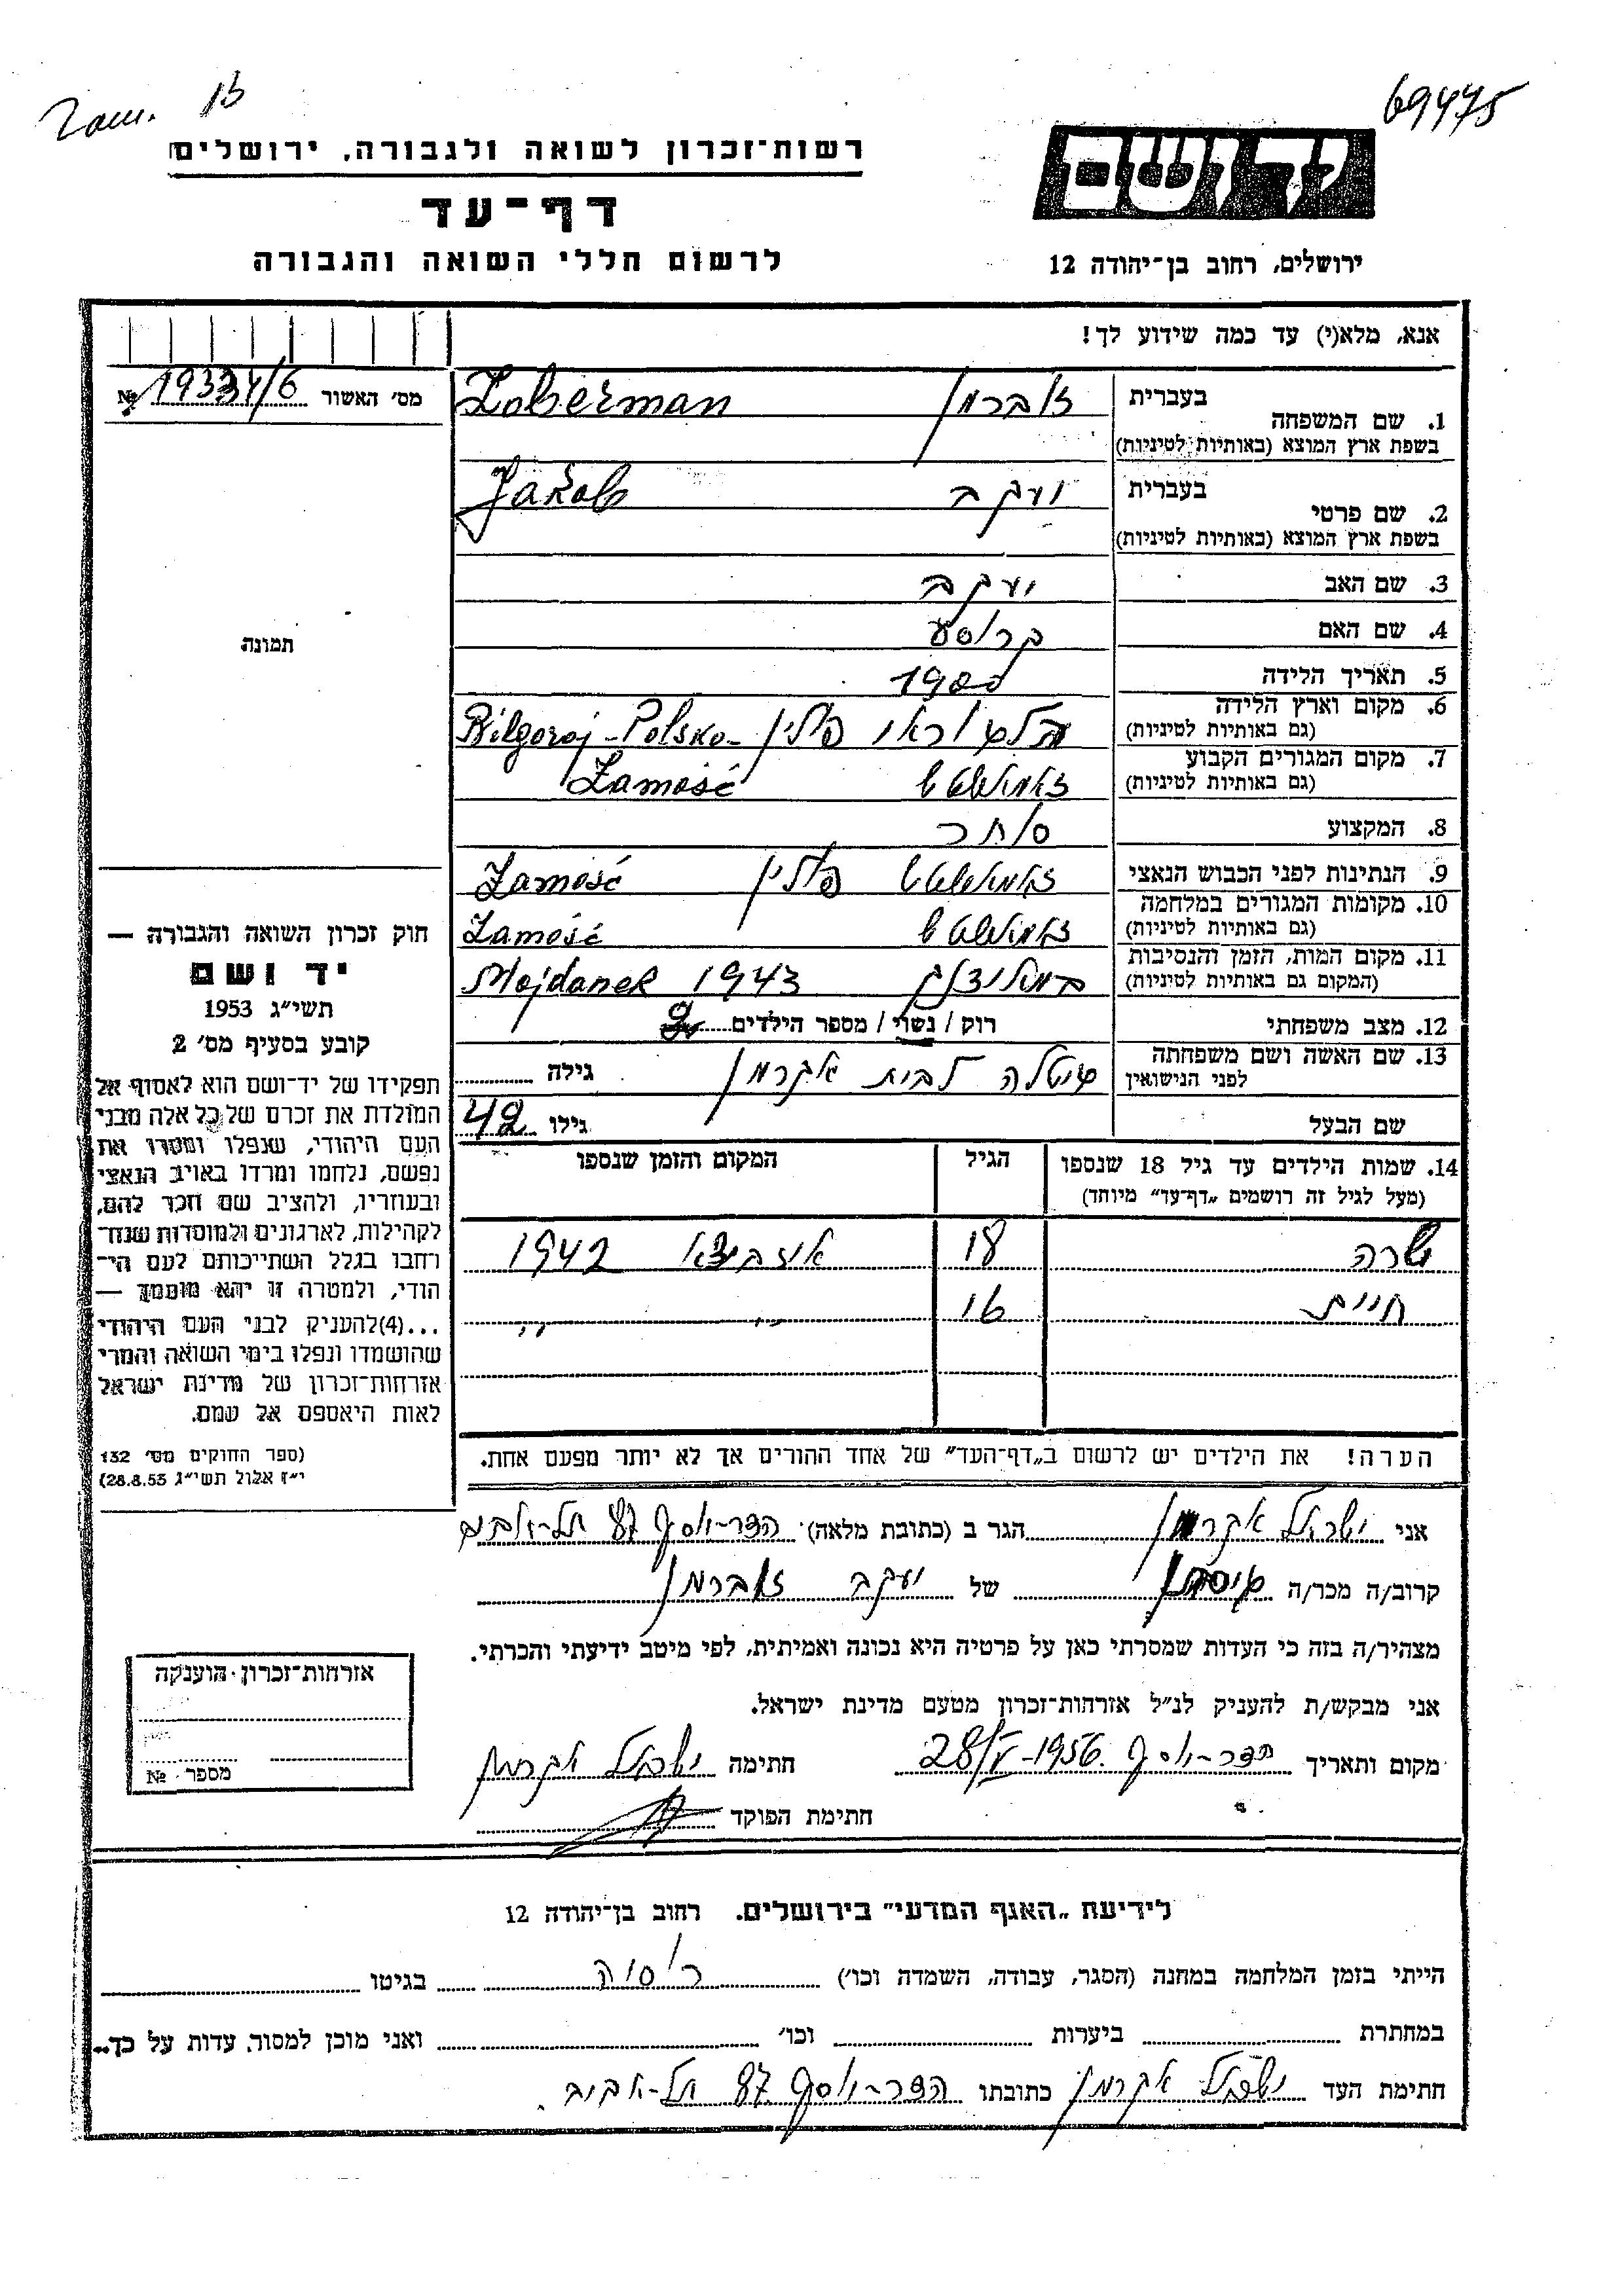 69475
יד ושם
ירושלים, רחוב בן־יהודה 12
רשות־זכרון לשואה ולגבורה, ירושלים
דף־עד
לרשום חללי השואה והגבורה
אנא, מלא(י) עד כמה שידוע לך!
מס׳ האשור № 19334/6
1. שם המשפחה בעברית זוברמן Zoberman
בשפת ארץ המוצא (באותיות לטיניות)
2. שם פרטי בעברית יעקב Jakob
בשפת ארץ המוצא (באותיות לטיניות)
3. שם האב יעקב
4. שם האם
5. תאריך הלידה 1900
6. מקום וארץ הלידה פולין Bilgoraj-Polsko-
(גם באותיות לטיניות)
7. מקום המגורים הקבוע Zamość
(גם באותיות לטיניות)
8. המקצוע סוחר
9. הנתינות לפני הכבוש הנאצי פולין Zamość
10. מקומות המגורים במלחמה Zamość
(גם באותיות לטיניות)
11. מקום המות, הזמן והנסיבות Majdanek 1943
(המקום גם באותיות לטיניות)
12. מצב משפחתי רוק / נשוי / מספר הילדים 2
13. שם האשה ושם משפחתה לבית אקרמן גילה
לפני הנישואין
שם הבעל גילו 42
14. שמות הילדים עד גיל 18 שנספו הגיל המקום והזמן שנספו
(מעל לגיל זה רושמים „דף־עד״ מיוחד)
שרה 18 איזביצא 1942
16 ״ ״
הערה! את הילדים יש לרשום ב„דף־העד״ של אחד ההורים אך לא יותר מפעם אחת.
תמונה
חוק זכרון השואה והגבורה —
יד ושם
תשי״ג 1953
קובע בסעיף מס׳ 2
תפקידו של יד־ושם הוא לאסוף אל
המולדת את זכרם של כל אלה מבני
העם היהודי, שנפלו ומסרו את
נפשם, נלחמו ומרדו באויב הנאצי
ובעוזריו, ולהציב שם וזכר להם,
לקהילות, לארגונים ולמוסדות שנח־
רחבו בגלל השתייכותם לעם הי־
הודי, ולמטרה זו יהא מוסמך —
...(4) להעניק לבני העם היהודי
שהושמדו ונפלו בימי השואה והמרי
אזרחות־זכרון של מדינת ישראל
לאות היאספם אל עמם.
(ספר החוקים מס׳ 132
י״ז אלול תשי״ג 28.8.53)
אני ישראל אקרמן הגר ב (כתובת מלאה) הדר-יוסף 87 תל-אביב
קרוב/ה מכר/ה גיסתו של יעקב זוברמן
מצהיר/ה בזה כי העדות שמסרתי כאן על פרטיה היא נכונה ואמיתית, לפי מיטב ידיעתי והכרתי.
אני מבקש/ת להעניק לנ״ל אזרחות־זכרון מטעם מדינת ישראל.
מקום ותאריך הדר-יוסף 28/V-1956 חתימה ישראל אקרמן
חתימת הפוקד
אזרחות־זכרון הוענקה
מספר №
לידיעת „האגף המדעי״ בירושלים. רחוב בן־יהודה 12
הייתי בזמן המלחמה במחנה (הסגר, עבודה, השמדה וכו׳) רוסיה בגיטו
במחתרת ביערות וכו׳ ואני מוכן למסור עדות על כך
חתימת העד ישראל אקרמן כתובתו הדר-יוסף 87 תל-אביב